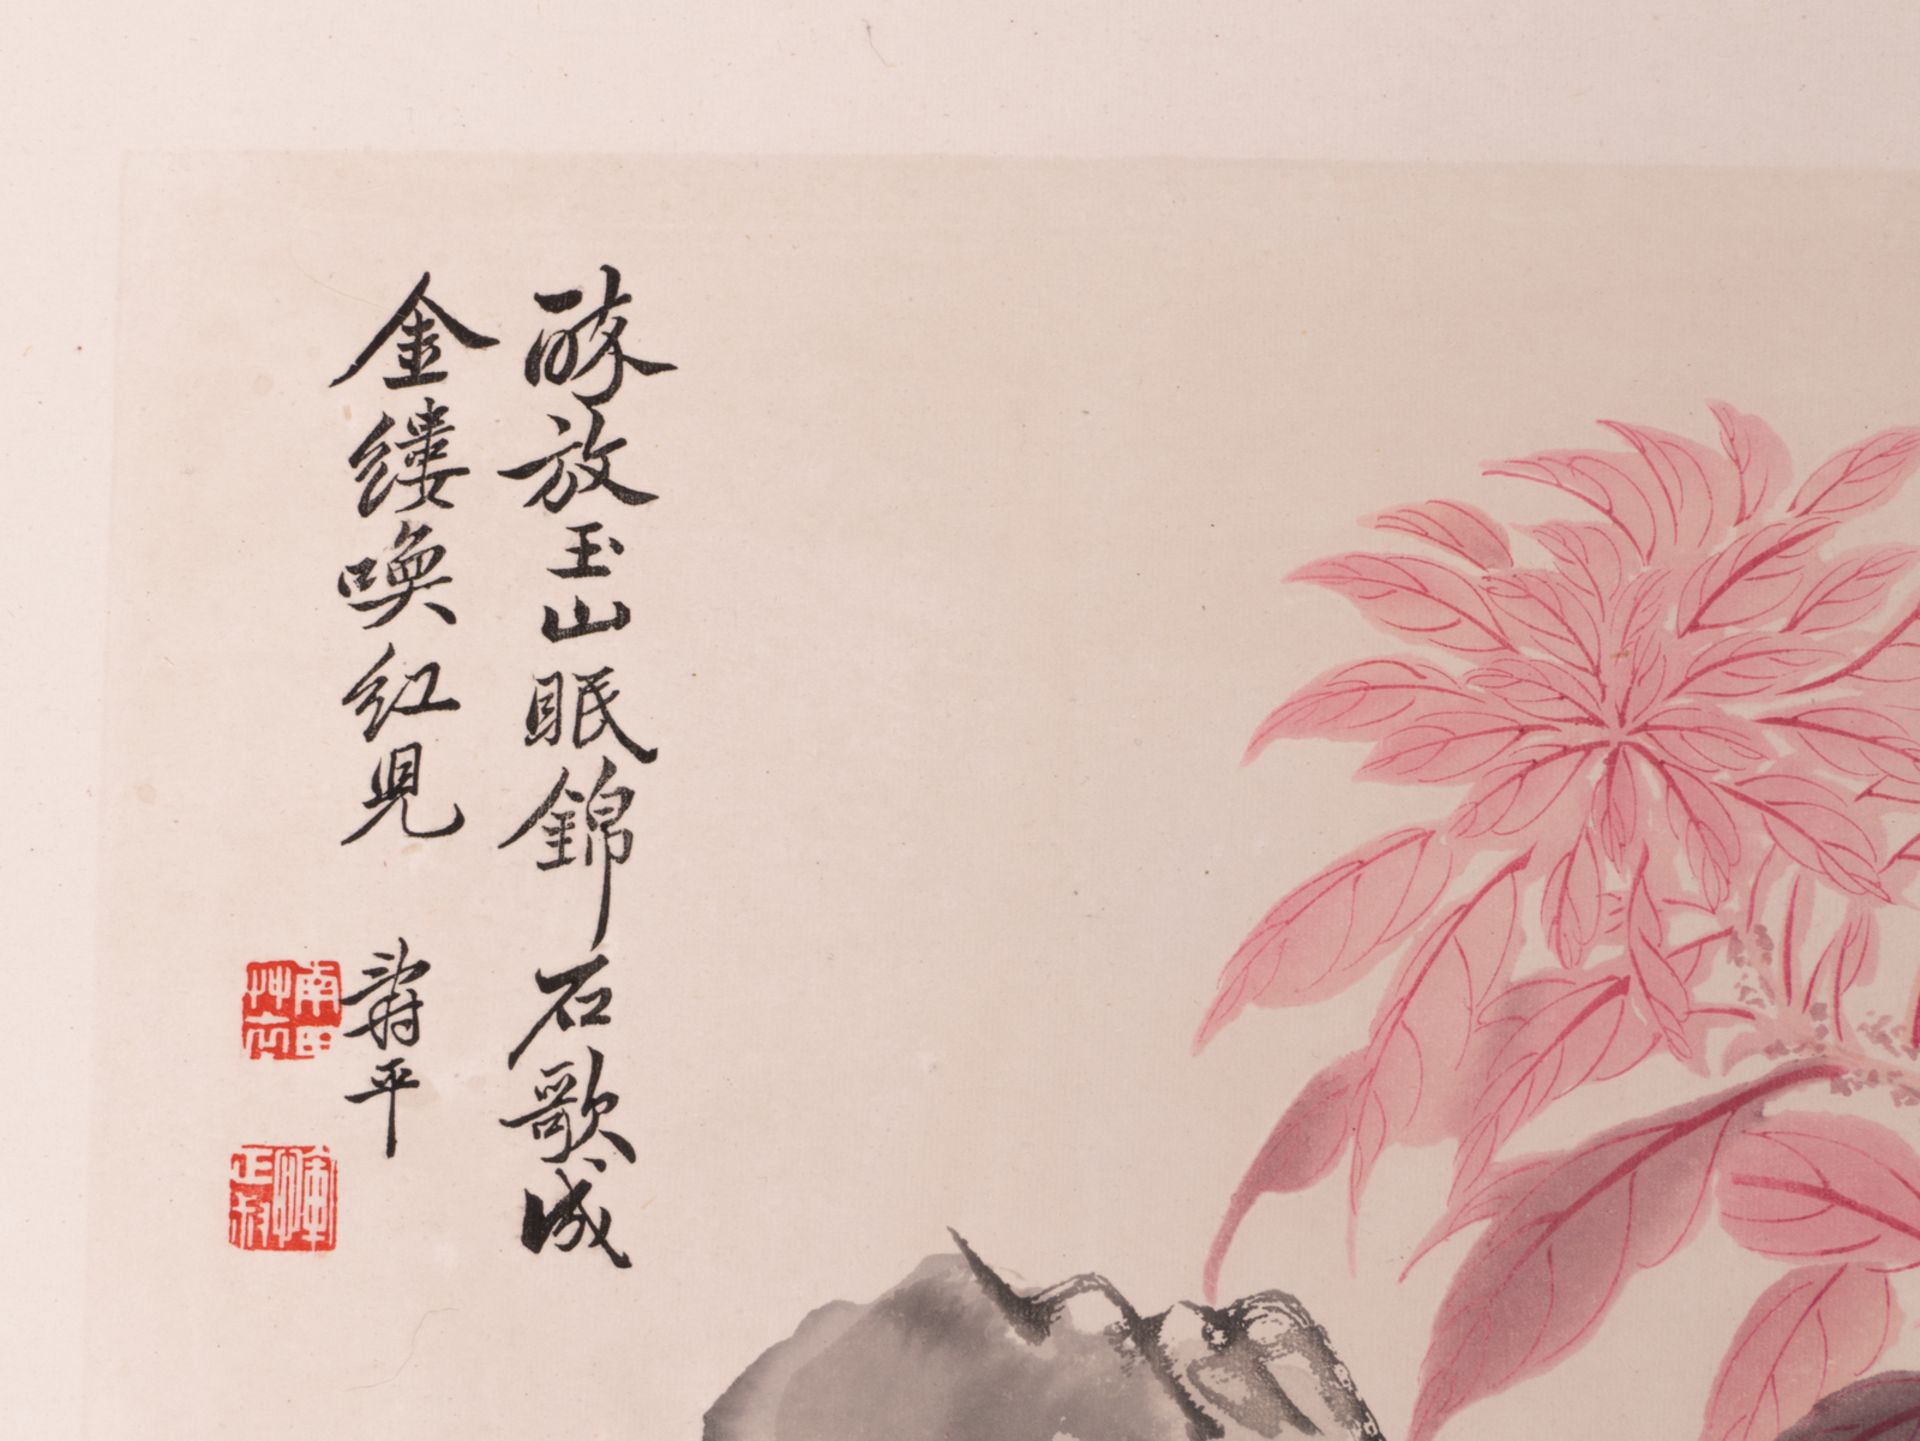 醉放玉山眠錦石歌成
金縷喚紅兒
壽平
南田
艸衣
惲
正叔